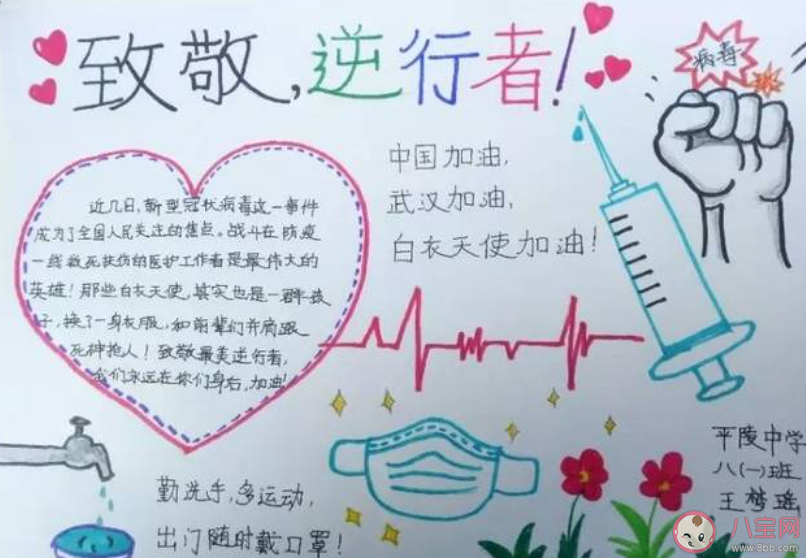 致敬,逆行者!
病毒
中国加油,
武汉加油,
白衣天使加油!
近几日,新型冠状病毒这一事件
成为了全国人民关注的焦点。战斗在防疫
一线救死扶伤的医护工作者是最伟大的
英雄!那些白衣天使,其实也是一群孩
子,换了一身衣服,和前辈们并肩跟
死神抢人!致敬最美逆行者,
我们永远在你们身后,加油!
勤洗手,多运动,
出门随时戴口罩!
平陵中学
八(一)班
王梦瑶
八宝网
www.8bb.com